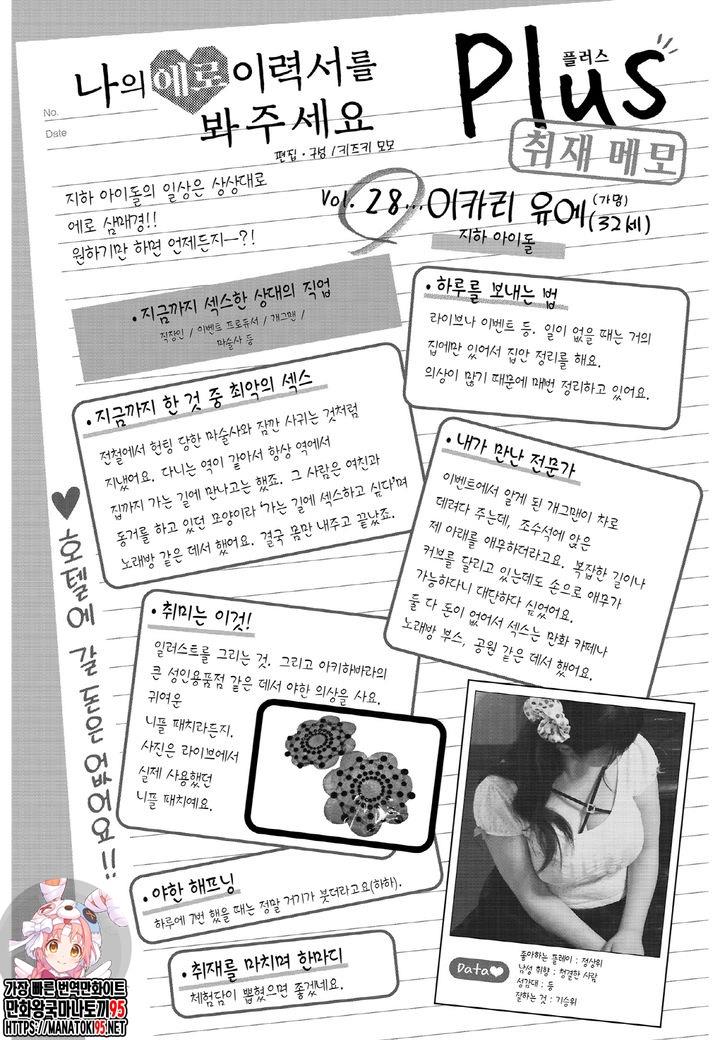 No.
Date
나의 에로 이력서를
봐 주세요
편집·구성 / 키즈키 모모
플러스
Plus
취재 메모
지하 아이돌의 일상은 상상대로
에로 삼매경!!
원하기만 하면 언제든지—?!
Vol. 28... 이카리 유에 (가명) (32세)
지하 아이돌
·지금까지 섹스한 상대의 직업
직장인 / 이벤트 프로듀서 / 개그맨 /
마술사 등
·하루를 보내는 법
라이브나 이벤트 등. 일이 없을 때는 거의
집에만 있어서 집안 정리를 해요.
의상이 많기 때문에 매번 정리하고 있어요.
·지금까지 한 것 중 최악의 섹스
전철에서 헌팅 당한 마술사와 잠깐 사귀는 것처럼
지냈어요. 다니는 역이 같아서 항상 역에서
집까지 가는 길에 만나고는 했죠. 그 사람은 여친과
동거를 하고 있던 모양이라 '가는 길에 섹스하고 싶다'며
노래방 같은 데서 했어요. 결국 몸만 내주고 끝났죠.
·내가 만난 전문가
이벤트에서 알게 된 개그맨이 차로
데려다 주는데, 조수석에 앉은
제 아래를 애무하더라고요. 복잡한 길이나
커브를 달리고 있는데도 손으로 애무가
가능하다니 대단하다 싶었어요.
둘 다 돈이 없어서 섹스는 만화 카페나
노래방 부스, 공원 같은 데서 했어요.
♥호텔에 갈 돈은 없어요!!
·취미는 이것!
일러스트를 그리는 것. 그리고 아키하바라의
큰 성인용품점 같은 데서 야한 의상을 사요.
귀여운
니플 패치라든지.
사진은 라이브에서
실제 사용했던
니플 패치예요.
·야한 해프닝
하루에 7번 했을 때는 정말 거기가 붓더라고요(하하).
·취재를 마치며 한마디
체험담이 뽑혔으면 좋겠네요.
Data♥
좋아하는 플레이 : 정상위
남성 취향 : 청결한 사람
성감대 : 등
잘하는 것 : 기승위
가장 빠른 번역만화이트
만화왕국마나토끼95
HTTPS://MANATOKI95.NET